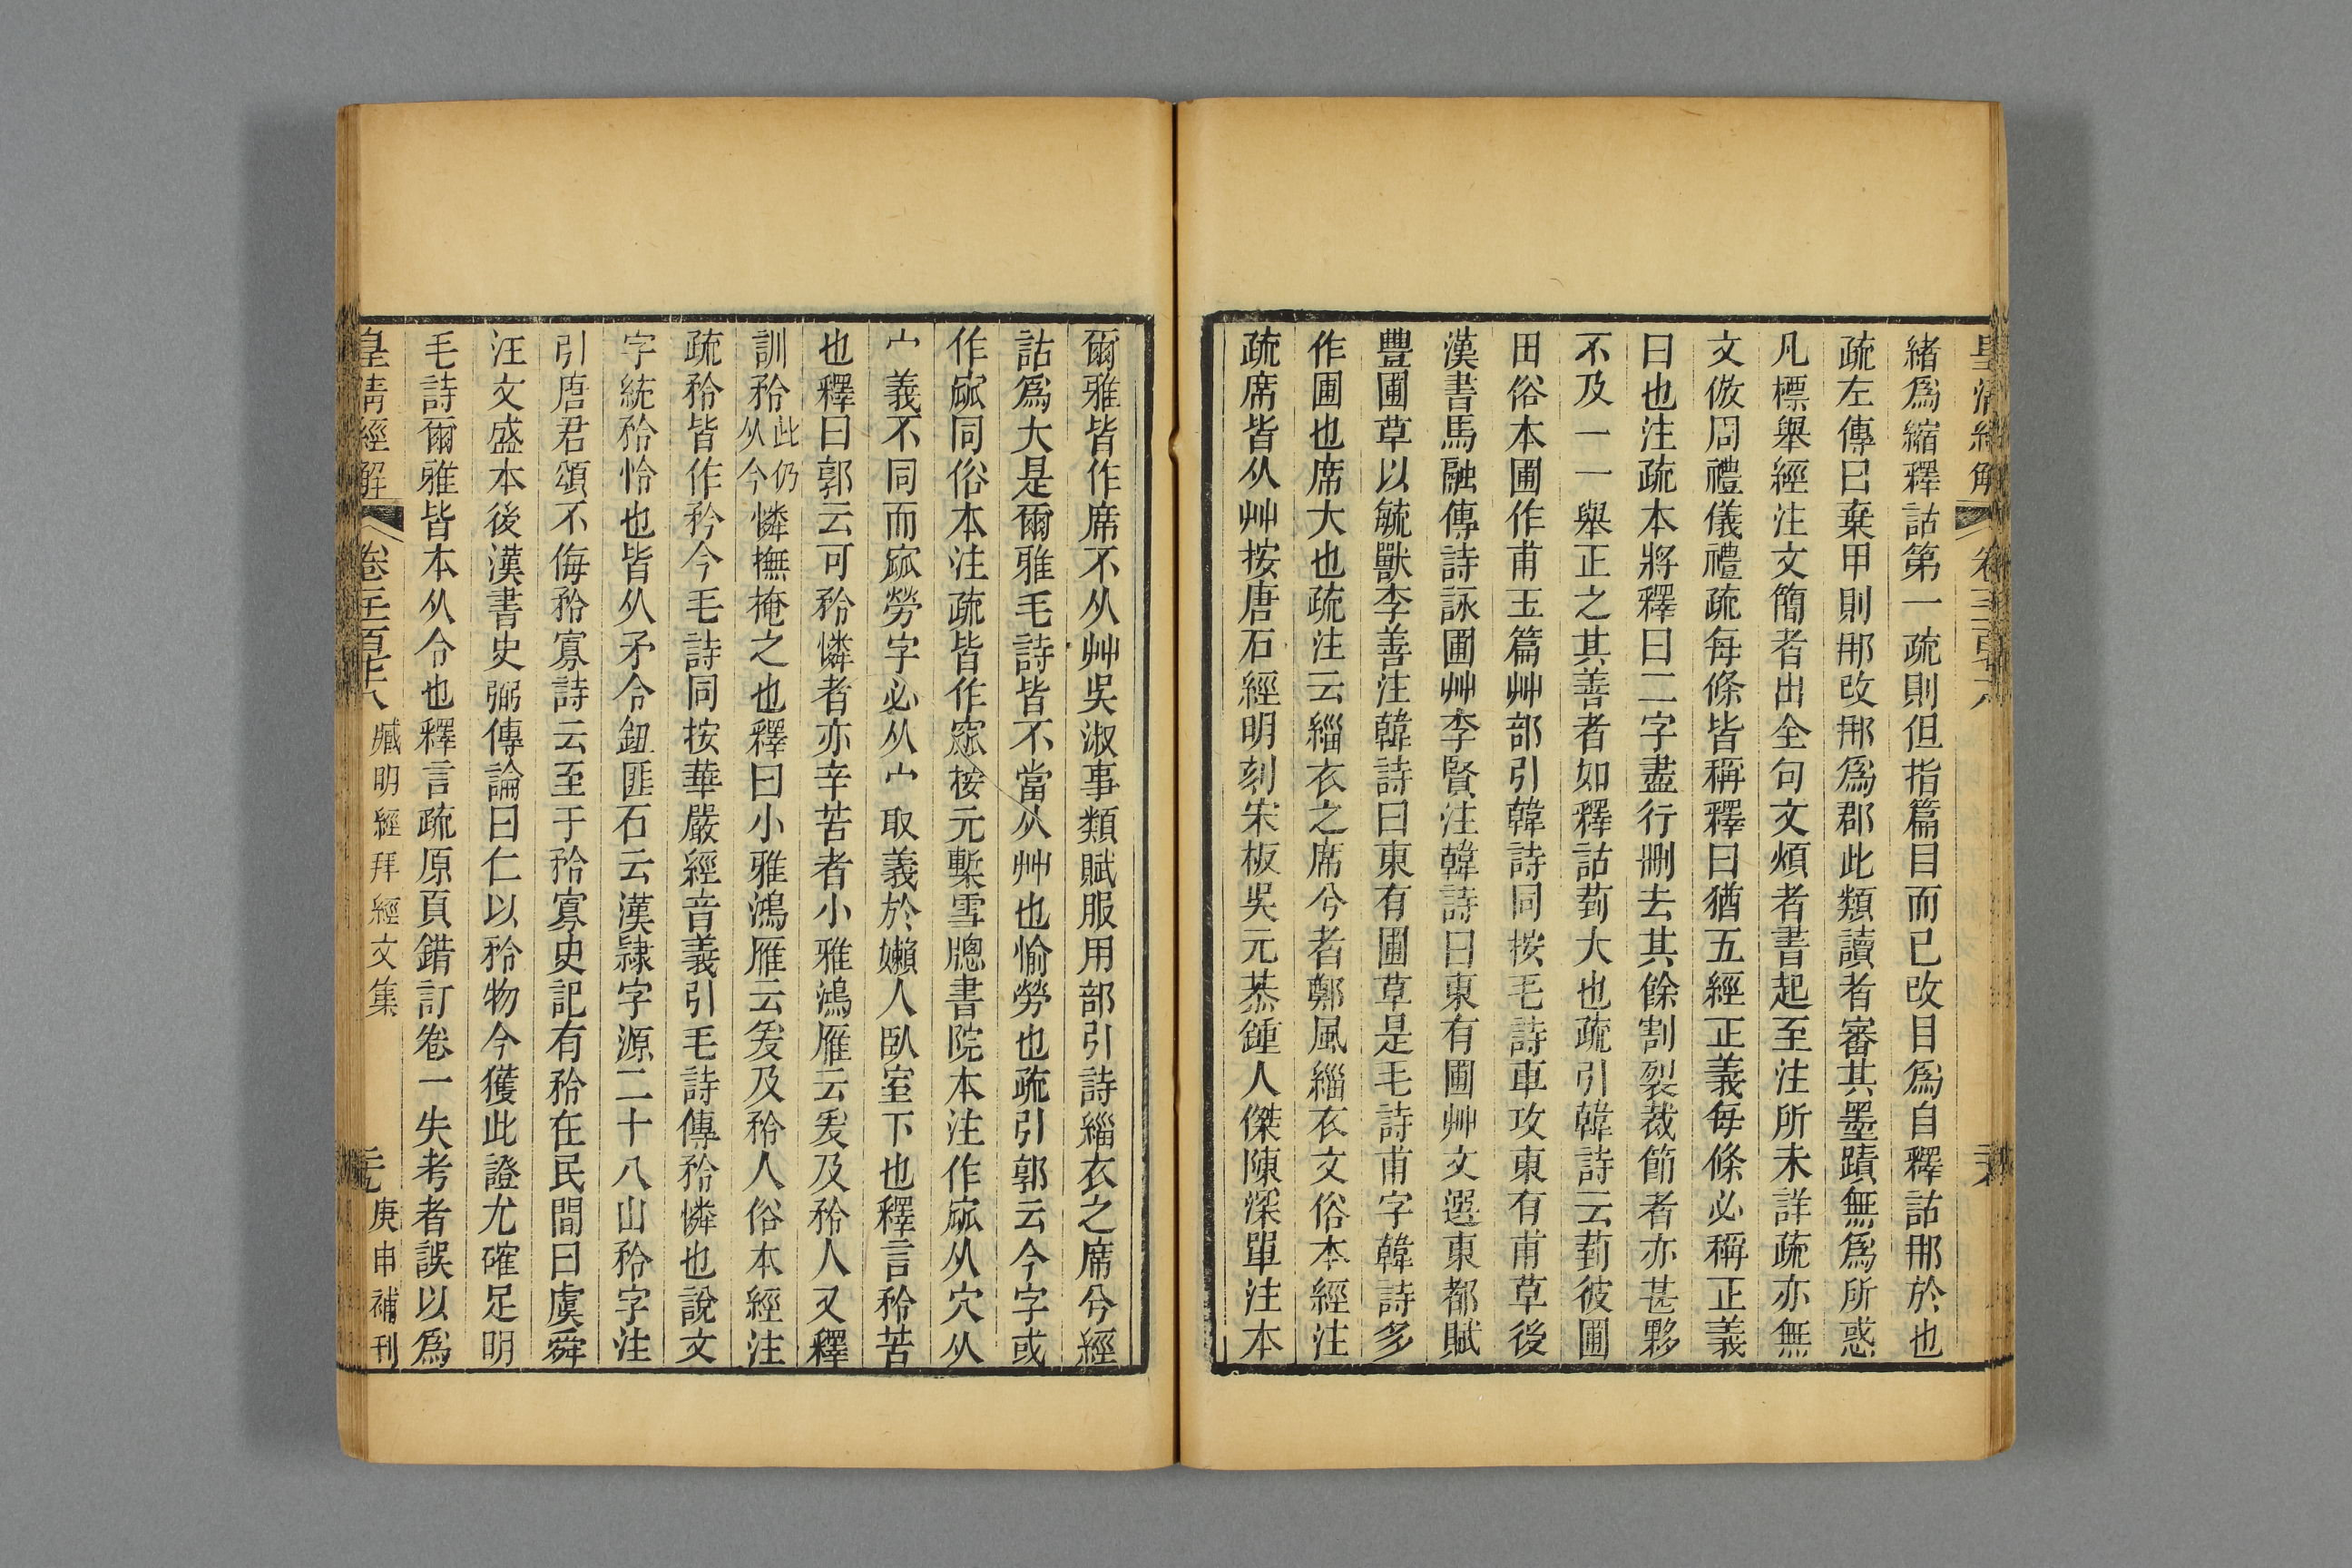 緒爲縮釋詁第一疏則但指篇目而已改目爲自釋詁那於也
疏左傳曰棄甲則那改那爲郡此類讀者審其墨蹟無爲所惑
凡標舉經注文簡者出全句文煩者書起至注所未詳疏亦無
文倣周禮儀禮疏每條皆稱釋曰猶五經正義每條必稱正義
曰也注疏本將釋曰二字盡行刪去其餘割裂裁節者亦甚夥
不及一一舉正之其善者如釋詁菿大也疏引韓詩云菿彼圃
田俗本圃作甫玉篇艸部引韓詩同按毛詩車攻東有甫草後
漢書馬融傳詩詠圃艸李賢注韓詩曰東有圃艸文選東都賦
豐圃草以毓獸李善注韓詩曰東有圃草是毛詩甫字韓詩多
作圃也席大也疏注云緇衣之席兮者鄭風緇衣文俗本經注
疏席皆从艸按唐石經明刻宋板吳元恭鍾人傑陳深單注本
爾雅皆作席不从艸吳淑事類賦服用部引詩緇衣之席兮經
詁爲大是爾雅毛詩皆不當从艸也愉勞也疏引郭云今字或
作寙同俗本注疏皆作窳按元槧雪牕書院本注作寙从穴从
宀義不同而寙勞字必从宀取義於嬾人臥室下也釋言矜苦
也釋曰郭云可矜憐者亦辛苦者小雅鴻雁云爰及矜人又釋
訓矜此仍从今憐撫掩之也釋曰小雅鴻雁云爰及矜人俗本經注
疏矜皆作矜今毛詩同按華嚴經音義引毛詩傳矜憐也說文
字統矜怜也皆从矛令鈕匪石云漢隸字源二十八山矜字注
引唐君頌不侮矜寡詩云至于矜寡史記有矜在民間曰虞舜
汪文盛本後漢書史弼傳論曰仁以矜物今獲此證尤確足明
毛詩爾雅皆本从令也釋言疏原頁錯訂卷一失考者誤以爲
皇清經解 卷千一百七十八 臧明經拜經文集 庚申補刊